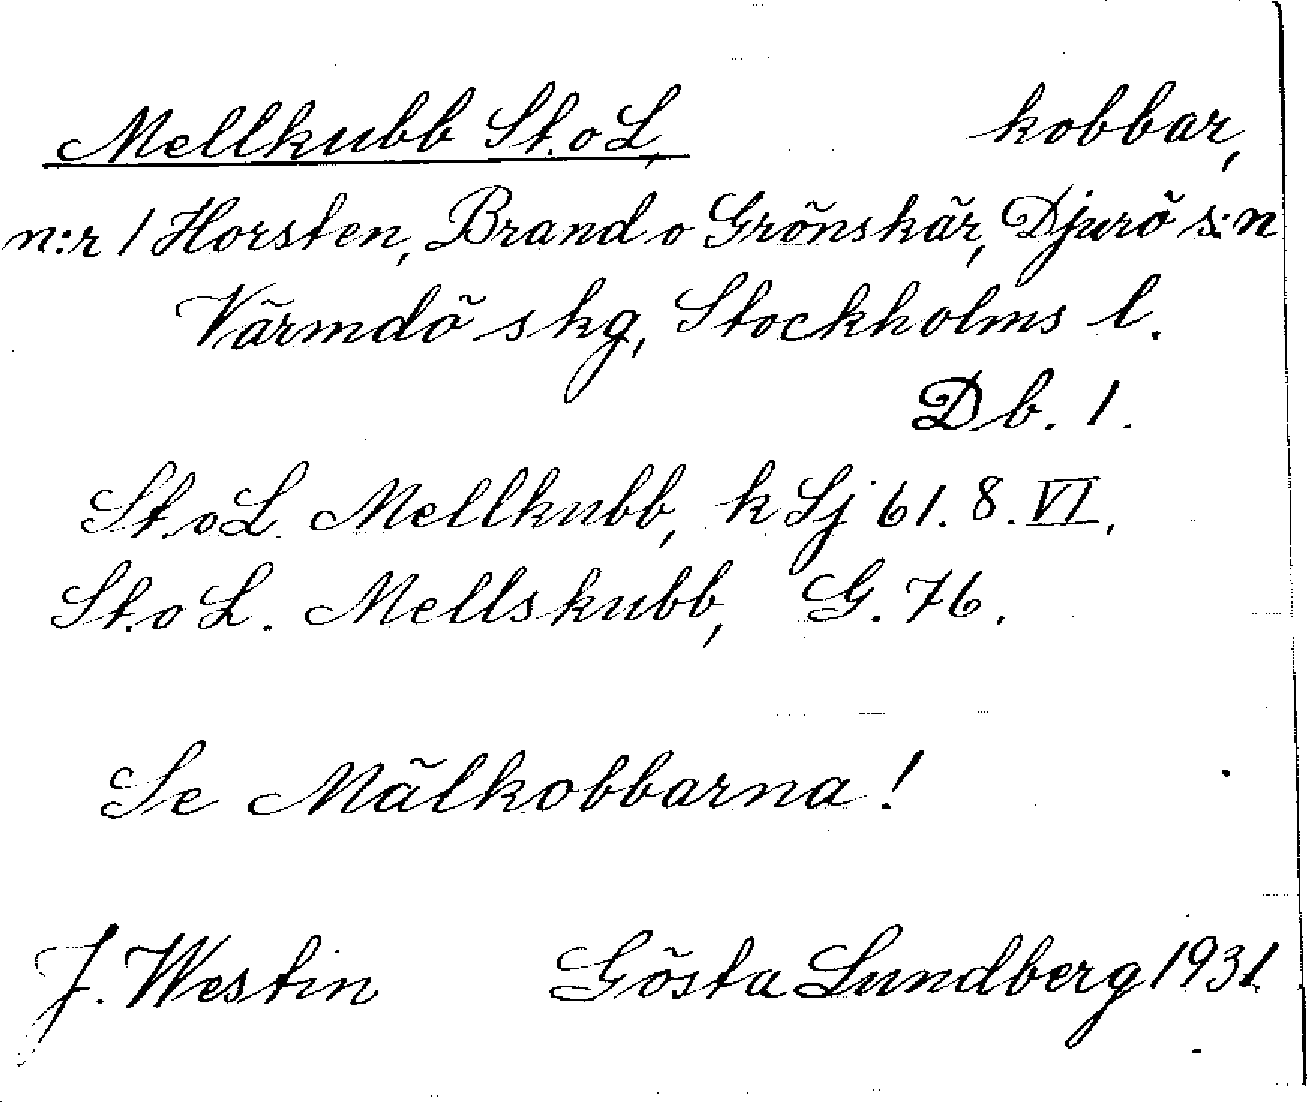 Mellkubb St. o L, kobbar,
n:r 1 Horsten, Brand o Grönskär, Djurö s:n
Värmdö skg, Stockholms l.
Db. 1.
St. o L. Mellkubb, k Sj 61. 8. VI.
St. o L. Mellskubb, G. 76.
Se Mälkobbarna!
J. Westin Gösta Lundberg 1931